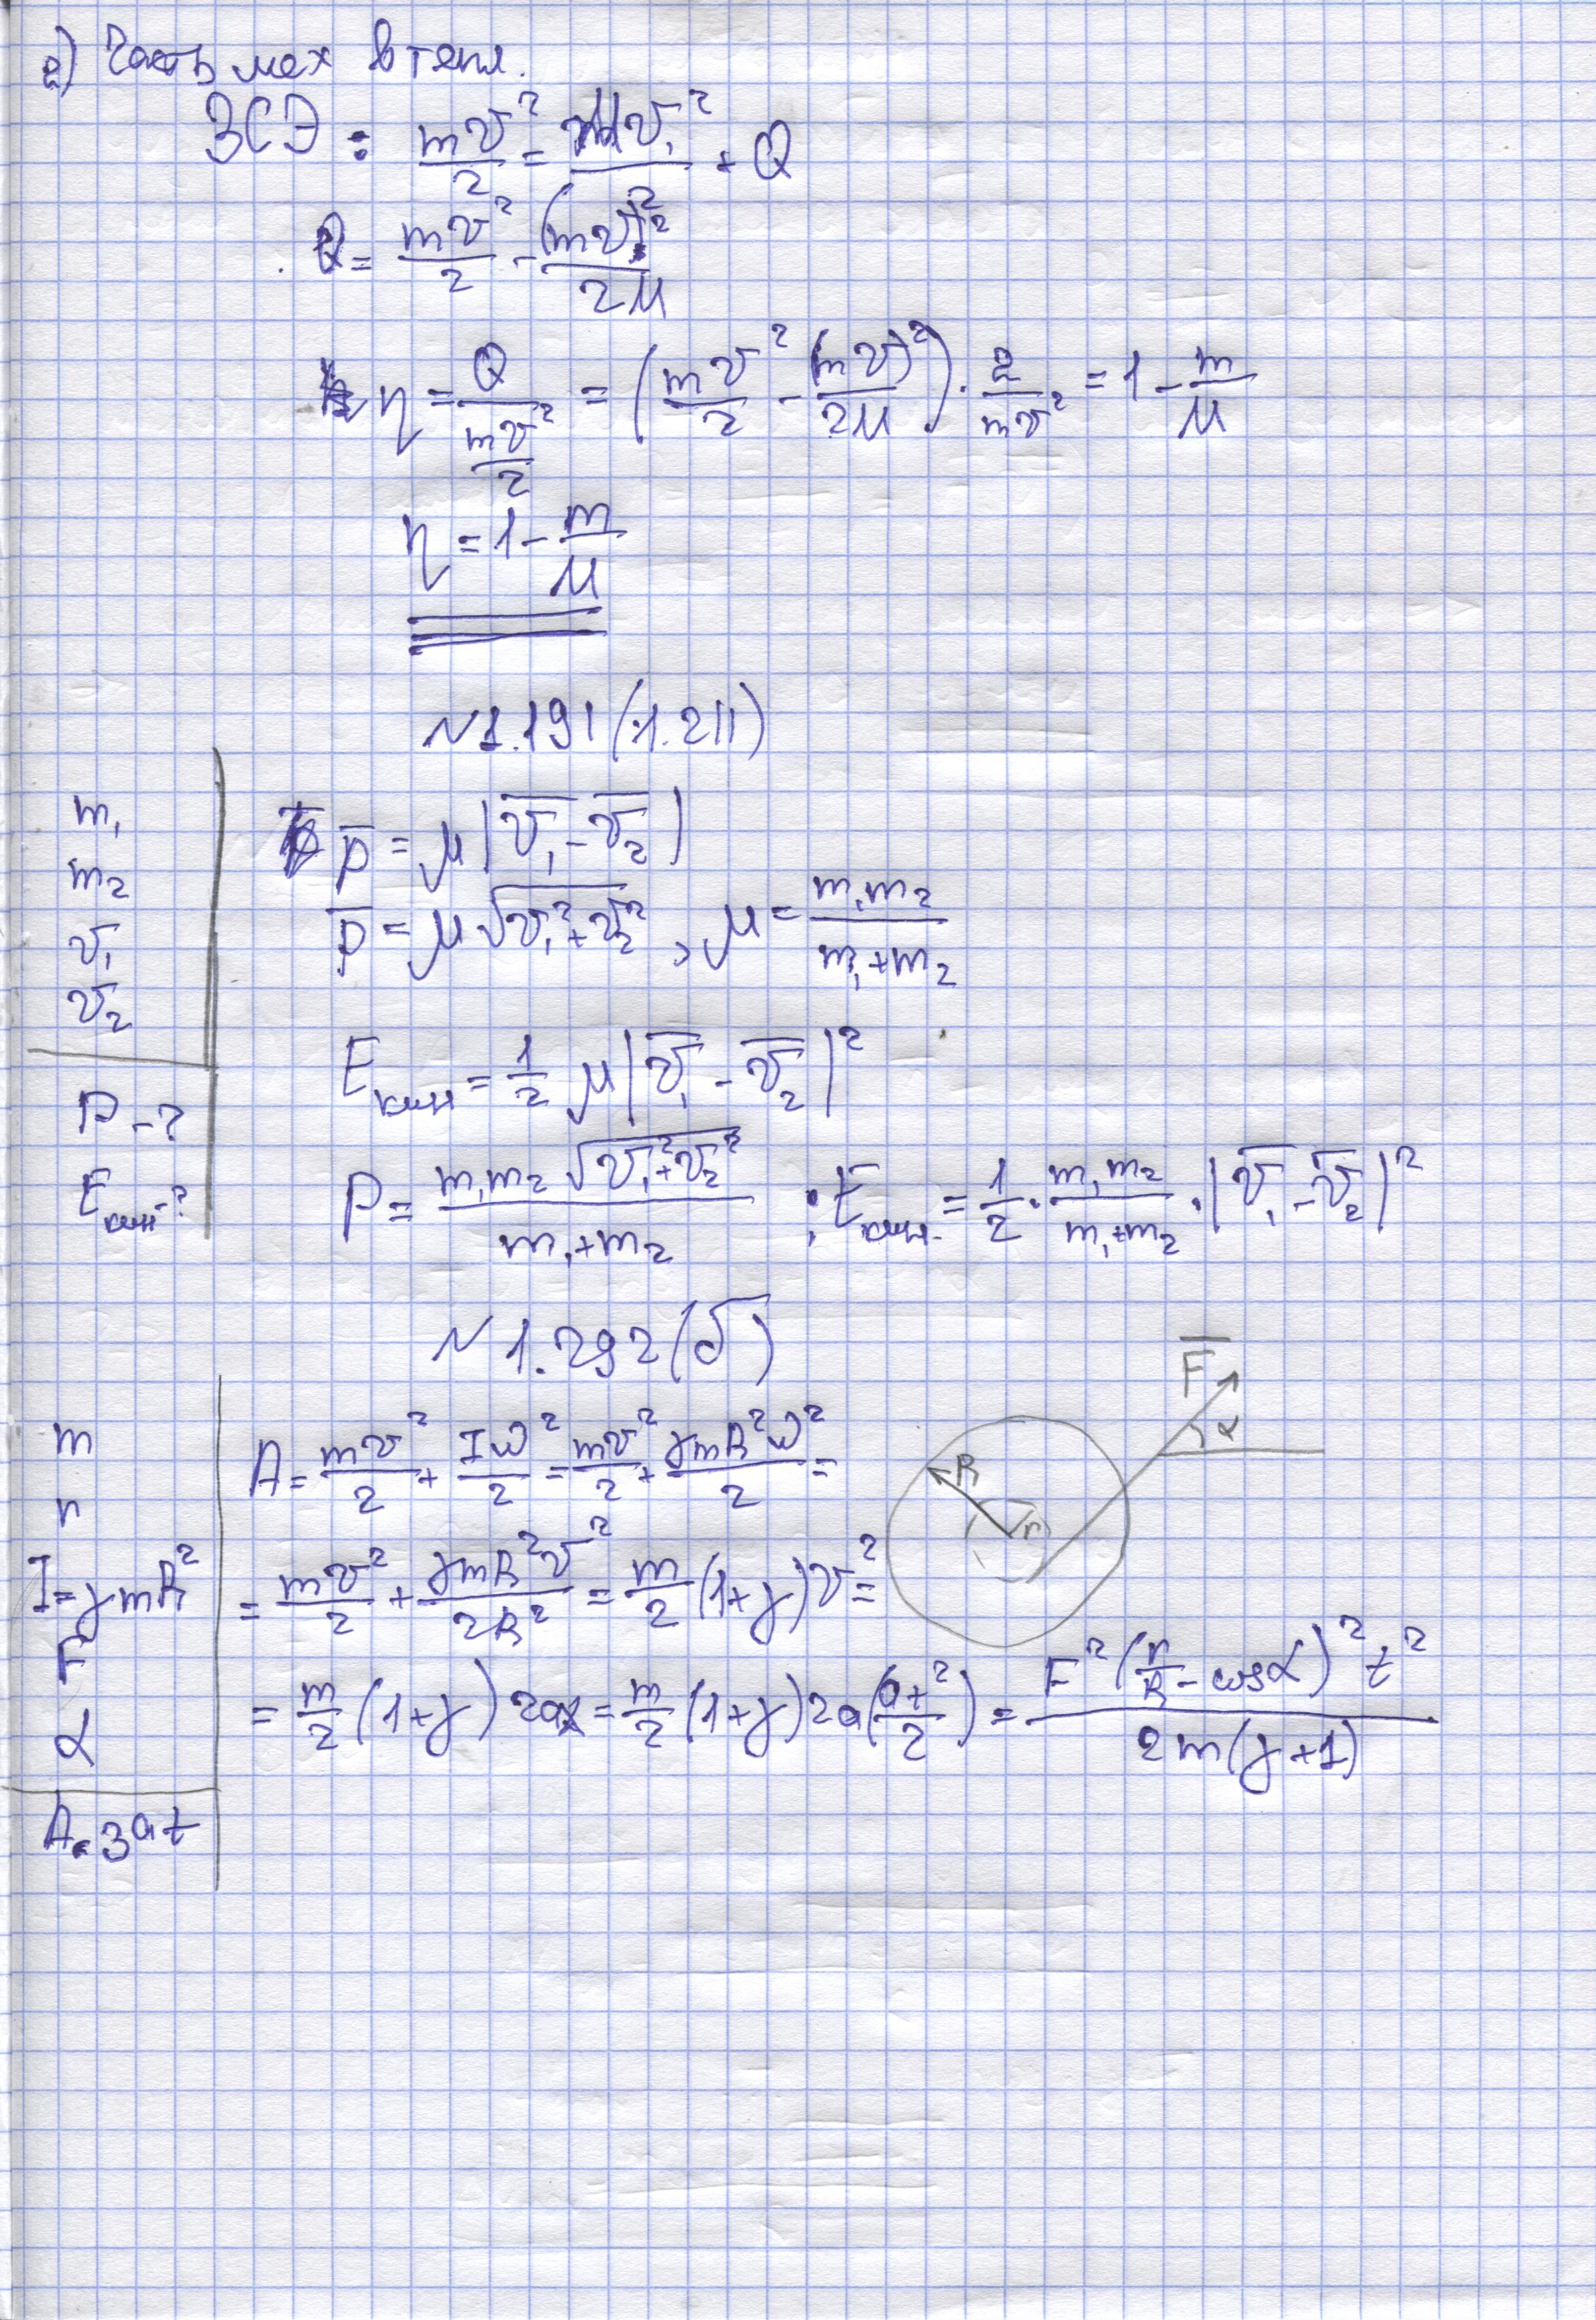 2) Часть мех в тепл.
ЗСЭ: mv²/2 = Mv₁²/2 + Q
Q = mv²/2 - (mv)²/2M
η = Q/(mv²/2) = (mv²/2 - (mv)²/2M) · 2/mv² = 1 - m/M
η = 1 - m/M
N 1.191 (1.211)
m₁
m₂
v₁
v₂
P - ?
Eкин - ?
p̅ = μ|v̅₁ - v̅₂|
p̅ = μ√(v₁² + v₂²), μ = m₁m₂/(m₁+m₂)
Eкин = 1/2 μ|v̅₁ - v̅₂|²
P = m₁m₂√(v₁²+v₂²)/(m₁+m₂) ; Eкин. = 1/2 · m₁m₂/(m₁+m₂) · |v̅₁ - v̅₂|²
N 1.292 (б)
m
r
I = γmR²
F
α
A. за t
A = mv²/2 + Iω²/2 = mv²/2 + γmR²ω²/2 =
= mv²/2 + γmR²v²/2R² = m/2 (1+γ)v² =
= m/2 (1+γ) 2ax = m/2 (1+γ) 2a(at²/2) = F²(r/R - cosα)²t²/2m(γ+1)
F̅
α
R
r